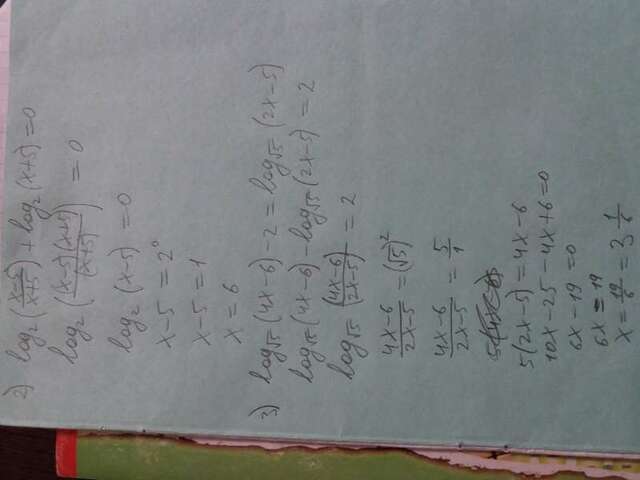 2) log₂(x-5/x+5) + log₂(x+5) = 0
log₂((x-5)(x+5)/(x+5)) = 0
log₂(x-5) = 0
x-5 = 2⁰
x-5 = 1
x = 6
3) log√5(4x-6) - 2 = log√5(2x-5)
log√5(4x-6) - log√5(2x-5) = 2
log√5((4x-6)/(2x-5)) = 2
4x-6/2x-5 = (√5)²
4x-6/2x-5 = 5/1
5(2x-5) = 4x-6
10x-25-4x+6=0
6x-19=0
6x=19
x = 19/6 = 3 1/6